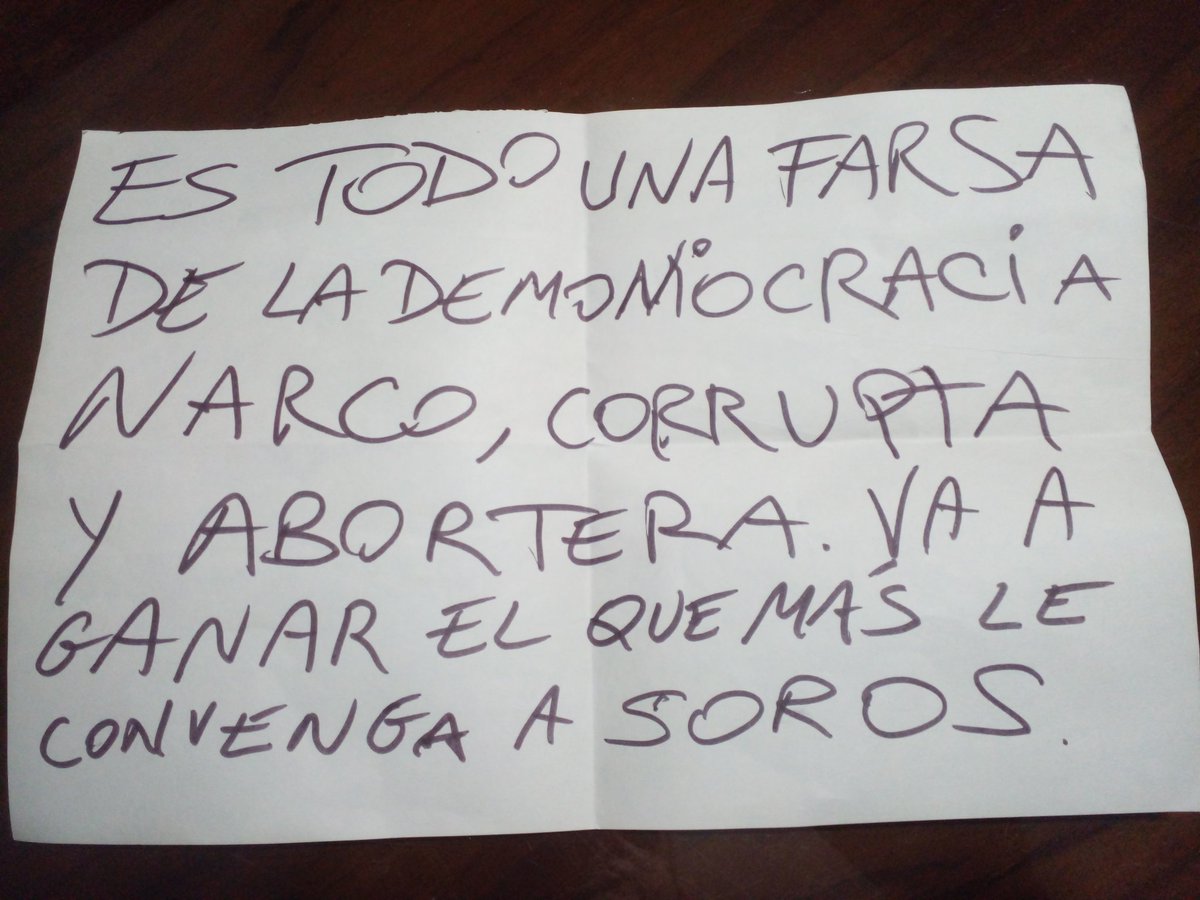 ES TODO UNA FARSA
DE LA DEMONIOCRACIA
NARCO, CORRUPTA
Y ABORTERA. VA A
GANAR EL QUE MÁS LE
CONVENGA A SOROS.